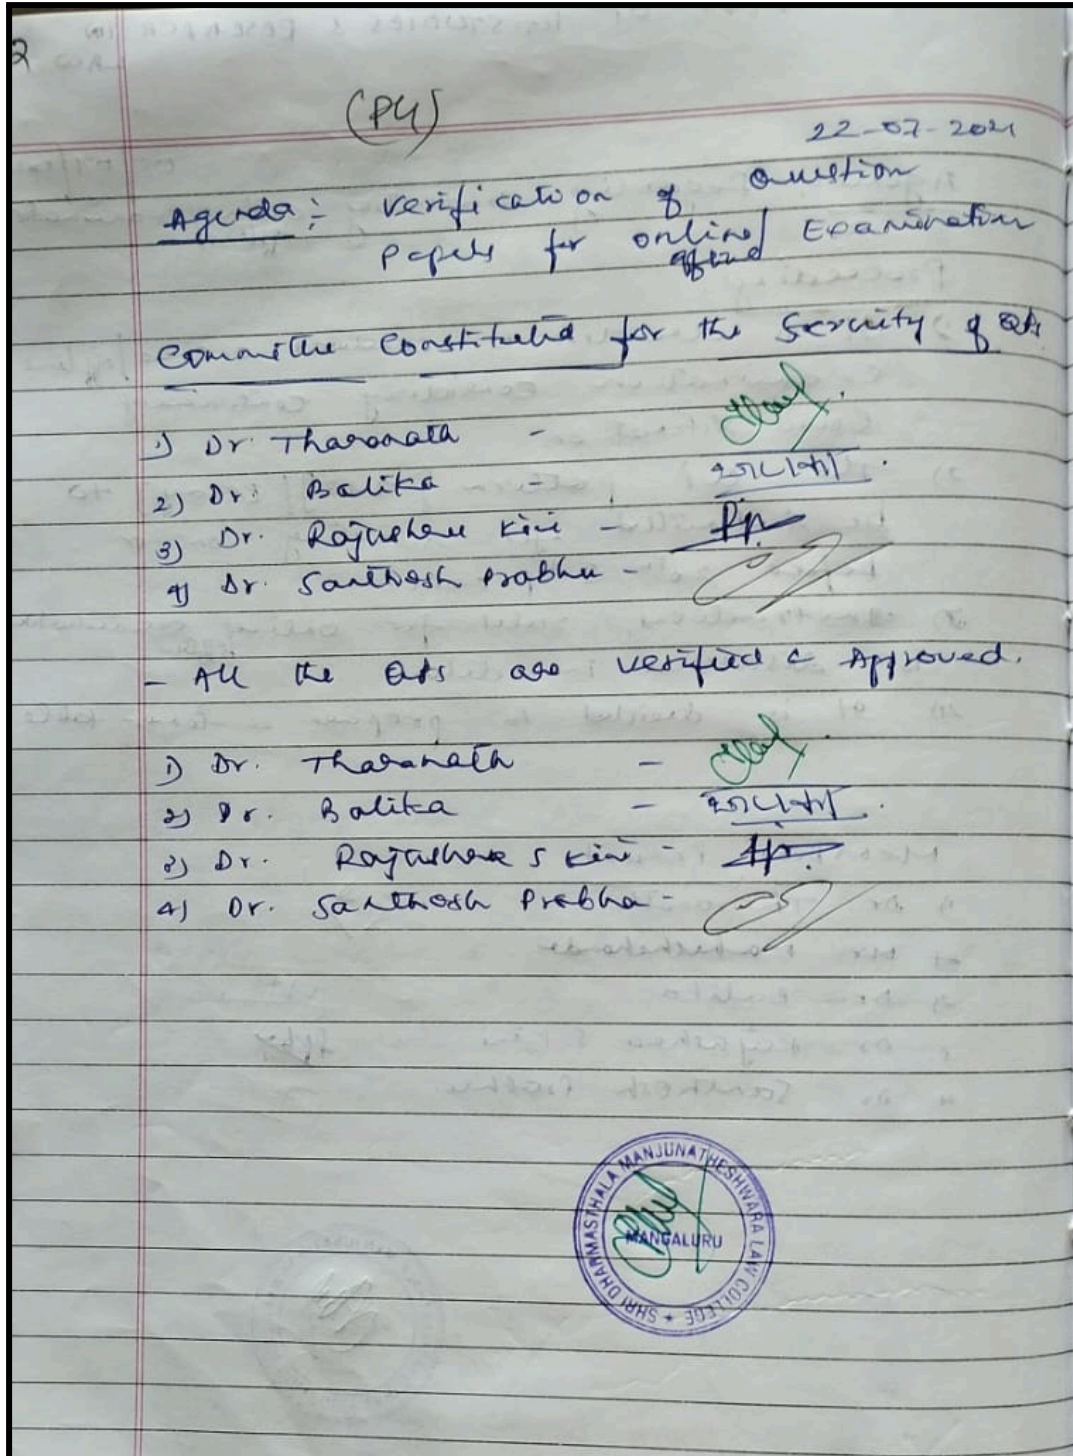 2
(P4)
22-07-2021
Agenda:- Verification of Question
Papers for online/ Examination
offline
Committee Constituted for the Scrcuity of QPs
1) Dr. Tharanath -
2) Dr. Balika -
3) Dr. Rajashree Kini -
4) Dr. Santhosh Prabhu -
- All the QPs are verified & Approved.
1) Dr. Tharanath -
2) Dr. Balika -
3) Dr. Rajashree S Kini -
4) Dr. Santhosh Prabhu -
SHRI DHARMASTHALA MANJUNATHESHWARA LAW COLLEGE
MANGALURU